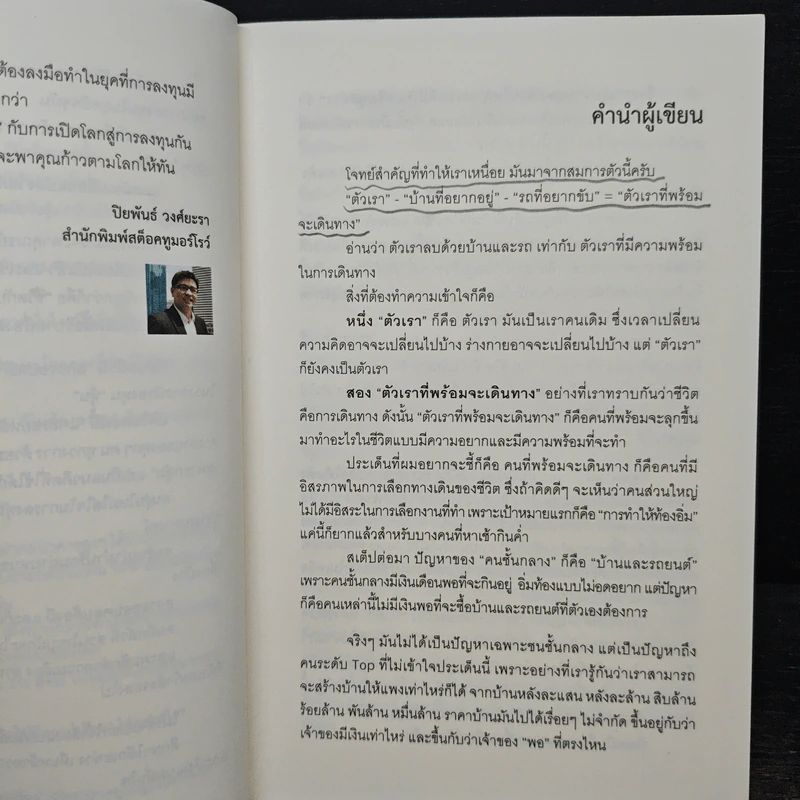 ต้องลงมือทำในยุคที่การลงทุนมี
กว่า
กับการเปิดโลกสู่การลงทุนกัน
จะพาคุณก้าวตามโลกให้ทัน
ปิยพันธ์ วงศ์ยะรา
สำนักพิมพ์สต็อคทูมอร์โรว์
คำนำผู้เขียน
โจทย์สำคัญที่ทำให้เราเหนื่อย มันมาจากสมการตัวนี้ครับ
“ตัวเรา” - “บ้านที่อยากอยู่” - “รถที่อยากขับ” = “ตัวเราที่พร้อม
จะเดินทาง”
อ่านว่า ตัวเราลบด้วยบ้านและรถ เท่ากับ ตัวเราที่มีความพร้อม
ในการเดินทาง
สิ่งที่ต้องทำความเข้าใจก็คือ
หนึ่ง “ตัวเรา” ก็คือ ตัวเรา มันเป็นเราคนเดิม ซึ่งเวลาเปลี่ยน
ความคิดอาจจะเปลี่ยนไปบ้าง ร่างกายอาจจะเปลี่ยนไปบ้าง แต่ “ตัวเรา”
ก็ยังคงเป็นตัวเรา
สอง “ตัวเราที่พร้อมจะเดินทาง” อย่างที่เราทราบกันว่าชีวิต
คือการเดินทาง ดังนั้น “ตัวเราที่พร้อมจะเดินทาง” ก็คือคนที่พร้อมจะลุกขึ้น
มาทำอะไรในชีวิตแบบมีความอยากและมีความพร้อมที่จะทำ
ประเด็นที่ผมอยากจะชี้ก็คือ คนที่พร้อมจะเดินทาง ก็คือคนที่มี
อิสรภาพในการเลือกทางเดินของชีวิต ซึ่งถ้าคิดดีๆ จะเห็นว่าคนส่วนใหญ่
ไม่ได้มีอิสระในการเลือกงานที่ทำ เพราะเป้าหมายแรกก็คือ “การทำให้ท้องอิ่ม”
แค่นี้ก็ยากแล้วสำหรับบางคนที่หาเช้ากินค่ำ
สเต็ปต่อมา ปัญหาของ “คนชั้นกลาง” ก็คือ “บ้านและรถยนต์”
เพราะคนชั้นกลางมีเงินเดือนพอที่จะกินอยู่ อิ่มท้องแบบไม่อดอยาก แต่ปัญหา
ก็คือคนเหล่านี้ไม่มีเงินพอที่จะซื้อบ้านและรถยนต์ที่ตัวเองต้องการ
จริงๆ มันไม่ได้เป็นปัญหาเฉพาะชนชั้นกลาง แต่เป็นปัญหาถึง
คนระดับ Top ที่ไม่เข้าใจประเด็นนี้ เพราะอย่างที่เรารู้กันว่าเราสามารถ
จะสร้างบ้านให้แพงเท่าไหร่ก็ได้ จากบ้านหลังละแสน หลังละล้าน สิบล้าน
ร้อยล้าน พันล้าน หมื่นล้าน ราคาบ้านมันไปได้เรื่อยๆ ไม่จำกัด ขึ้นอยู่กับว่า
เจ้าของมีเงินเท่าไหร่ และขึ้นกับว่าเจ้าของ “พอ” ที่ตรงไหน